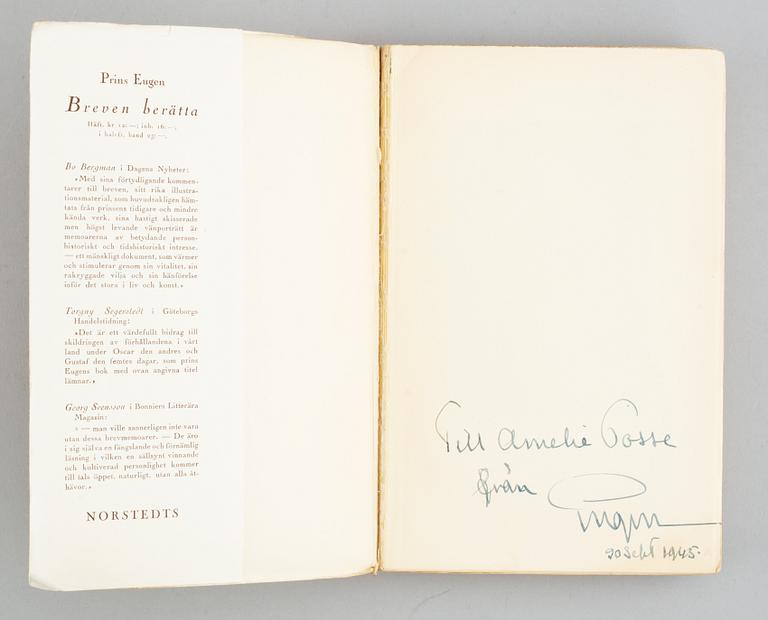 Prins Eugen
Breven berätta
Häft. kr 12:—; inb. 16:—;
i halvfr. band 23:—.
Bo Bergman i Dagens Nyheter:
»Med sina förtydligande kommen-
tarer till breven, sitt rika illustra-
tionsmaterial, som huvudsakligen häm-
tats från prinsens tidigare och mindre
kända verk, sina hastigt skisserade
men högst levande vänporträtt är
memoarerna av betydande person-
historiskt och tidshistoriskt intresse.
— ett mänskligt dokument, som värmer
och stimulerar genom sin vitalitet, sin
rakryggade vilja och sin hänförelse
inför det stora i liv och konst.»
Torgny Segerstedt i Göteborgs
Handelstidning:
»Det är ett värdefullt bidrag till
skildringen av förhållandena i vårt
land under Oscar den andres och
Gustaf den femtes dagar, som prins
Eugens bok med ovan angivna titel
lämnar.»
Georg Svensson i Bonniers Litterära
Magasin:
» — man ville sannerligen inte vara
utan dessa brevmemoarer. — De äro
i sig själva en fängslande och förnämlig
läsning i vilken en sällsynt vinnande
och kultiverad personlighet kommer
till tals öppet, naturligt, utan alla åt-
hävor.»
NORSTEDTS
Till Amelie Posse
från
Eugen
20 Sept 1945.